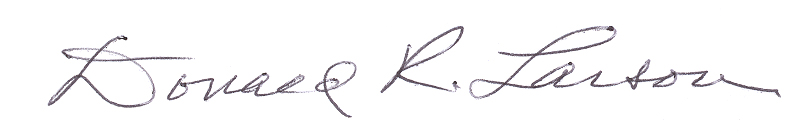 Donald R. Larson